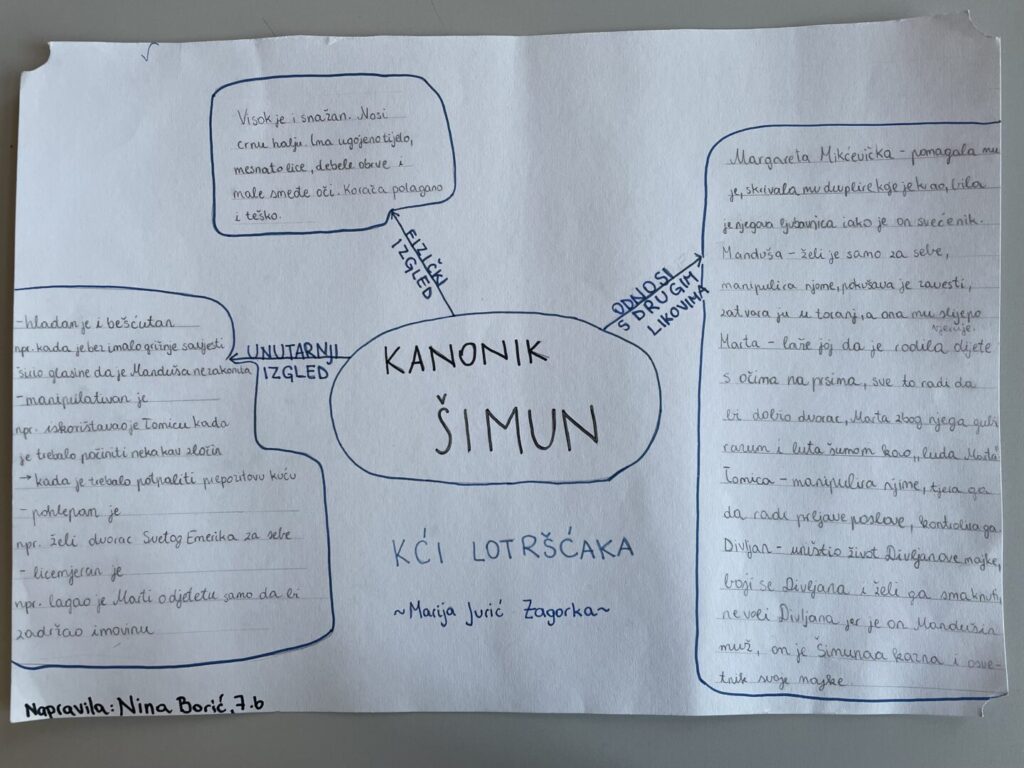 Visok je i snažan. Nosi
crnu halju. Ima ugojeno tijelo,
mesnato lice, debele obrve i
male smeđe oči. Korača polagano
i teško.
FIZIČKI
IZGLED
KANONIK
ŠIMUN
UNUTARNJI
IZGLED
-hladan je i bešćutan
npr. kada je bez imalo grižnje savjesti
širio glasine da je Manduša nezakonita
-manipulativan je
npr. iskorištavao je Tomicu kada
je trebalo počiniti nekakav zločin
→ kada je trebalo potpaliti prepozitovu kuću
-pohlepan je
npr. želi dvorac Svetog Emerika za sebe
- licemjeran je
npr. lagao je Marti o djetetu samo da bi
zadržao imovinu
ODNOSI
S DRUGIM
LIKOVIMA
Margareta Mikčevička - pomagala mu
je, skrivala mu duplire koje je krao, bila
je njegova ljubavnica iako je on svećenik.
Manduša - želi je samo za sebe,
manipulira njome, pokušava je zavesti,
zatvara ju u toranj, a ona mu slijepo
vjeruje.
Marta - laže joj da je rodila dijete
s očima na prsima, sve to radi da
bi dobio dvorac, Marta zbog njega gubi
razum i luta šumom kao „luda Marta"
Tomica - manipulira njime, tjera ga
da radi prljave poslove, kontrolira ga
Divljan - uništio život Divljanove majke,
boji se Divljana i želi ga smaknuti,
ne voli Divljana jer je on Mandušin
muž, on je Šimunaa kazna i osve-
tnik svoje majke
KĆI LOTRŠĆAKA
~Marija Jurić Zagorka~
Napravila: Nina Borić, 7.b